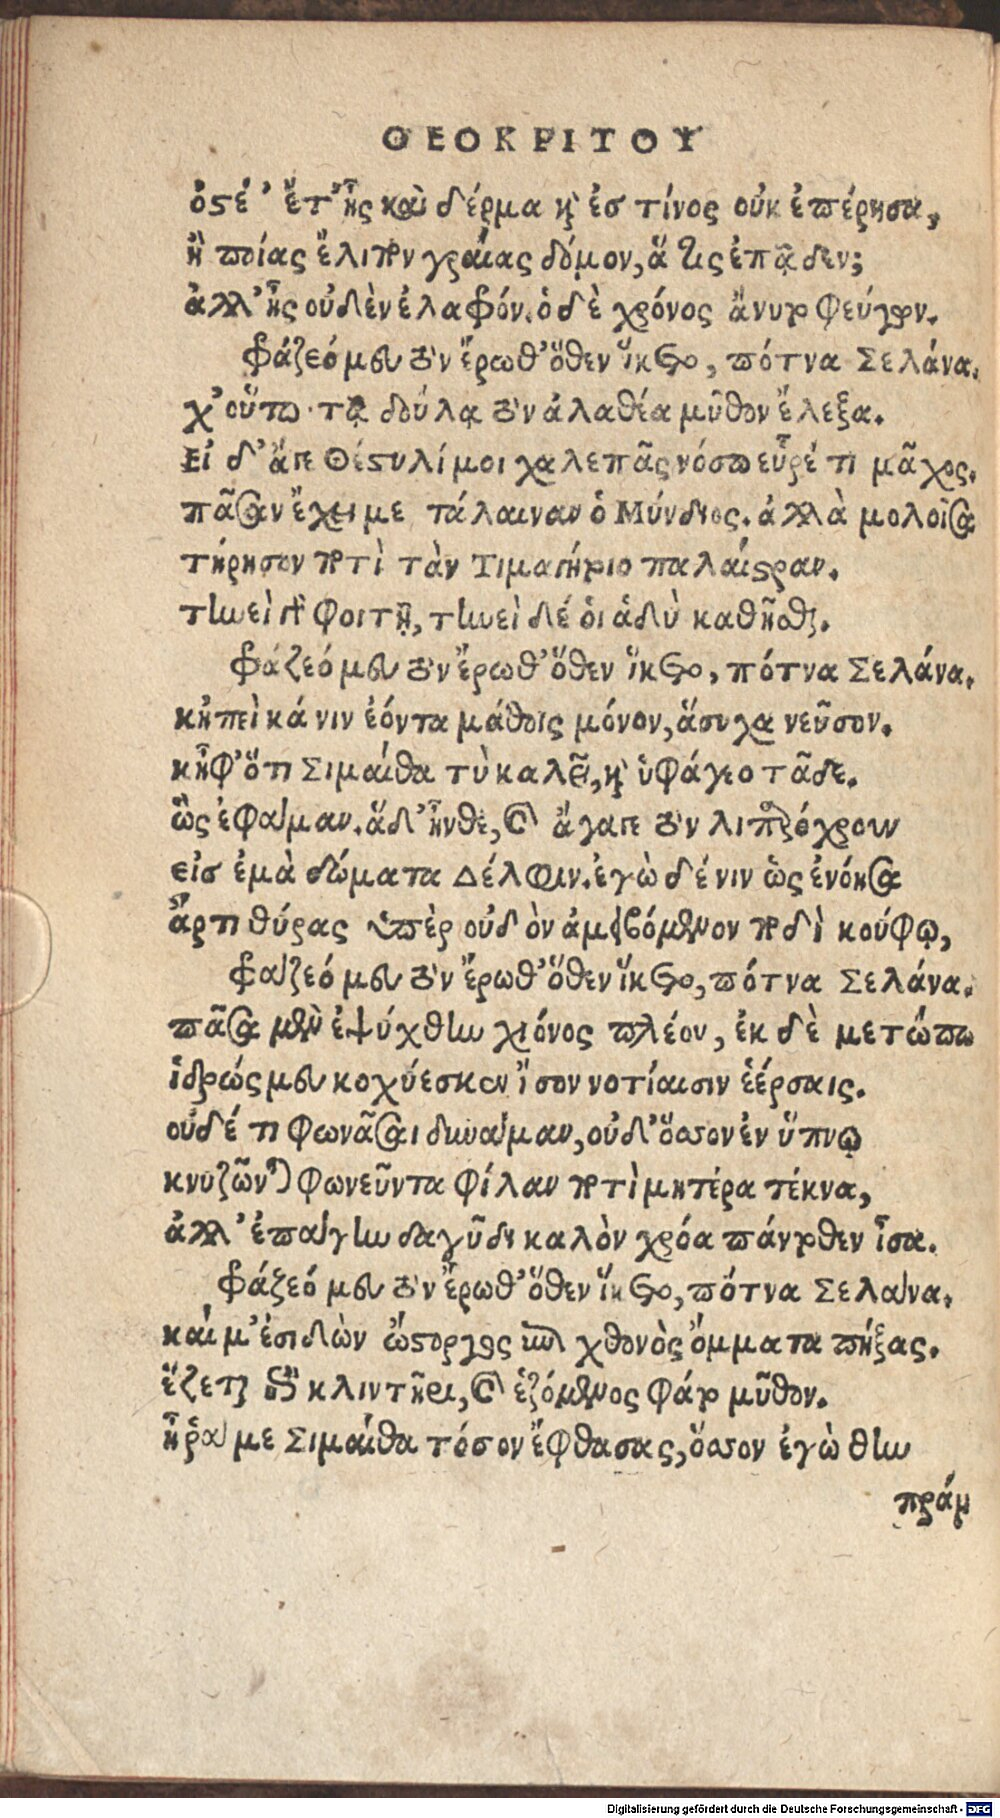 ΘΕΟΚΡΙΤΟΥ
ὀστέ' ἔτ' ἦς καὶ δέρμα κỳ ἐσ τίνος οὐκ ἐπέρησα,
ἢ ποίας ἔλιπον γραίας δόμον, ἅ τις ἐπᾷδεν;
ἀλλ' ἦς οὐδὲν ἐλαφρόν. ὁ δὲ χρόνος ἄνυτο φεύγων.
φράζεό μευ τὸν ἔρωθ' ὅθεν ἵκετο, πότνα Σελάνα.
χ' οὕτω τᾷ δούλᾳ τὸν ἀλαθέα μῦθον ἔλεξα.
Εἰ δ' ἄγε Θέστυλί μοι χαλεπᾶς νόσω εὗρέ τι μᾶχος.
πᾶσαν ἔχει με τάλαιναν ὁ Μύνδιος. ἀλλὰ μολοῖσα
τήρησον ποτὶ τὰν Τιμαγήτοιο παλαίστραν.
τηνεὶ γὰρ φοιτῇ, τηνεὶ δέ οἱ ἁδὺ καθῆσθαι.
φράζεό μευ τὸν ἔρωθ' ὅθεν ἵκετο, πότνα Σελάνα.
κἠπεὶ κά νιν ἐόντα μάθοις μόνον, ἅσυχα νεῦσον.
κᾖφ' ὅτι Σιμαίθα τὺ καλεῖ, καὶ ὑφάγεο τᾶδε.
ὣς ἐφάμαν. ἁ δ' ἦνθε, καὶ ἄγαγε τὸν λιπαρόχροων
εἰσ ἐμὰ δώματα Δέλφιν. ἐγὼ δέ νιν ὡς ἐνόησα
ἄρτι θύρας ὑπὲρ οὐδὸν ἀμειβόμενον ποδὶ κούφῳ,
φράζεό μευ τὸν ἔρωθ' ὅθεν ἵκετο, πότνα Σελάνα.
πᾶσα μὲν ἐψύχθην χιόνος πλέον, ἐκ δὲ μετώπω
ἱδρώς μευ κοχύεσκεν ἴσον νοτίαισιν ἐέρσαις.
οὐδέ τι φωνᾶσαι δυνάμαν, οὐδ' ὅσσον ἐν ὕπνῳ
κνυζῶνται φωνεῦντα φίλαν ποτὶ μητέρα τέκνα,
ἀλλ' ἐπάγην δαγῦδι καλὸν χρόα πάντοθεν ἶσα.
φράζεό μευ τὸν ἔρωθ' ὅθεν ἵκετο, πότνα Σελάνα.
καί μ' ἐσιδὼν ὥστοργος ἐπὶ χθονὸς ὄμματα πήξας.
ἕζετ' ἐπὶ κλιντῆρι, καὶ ἑζόμενος φάτο μῦθον.
ἦρά με Σιμαίθα τόσον ἔφθασας, ὅσσον ἐγὼ θην
πράμ
Digitalisierung gefördert durch die Deutsche Forschungsgemeinschaft - DFG